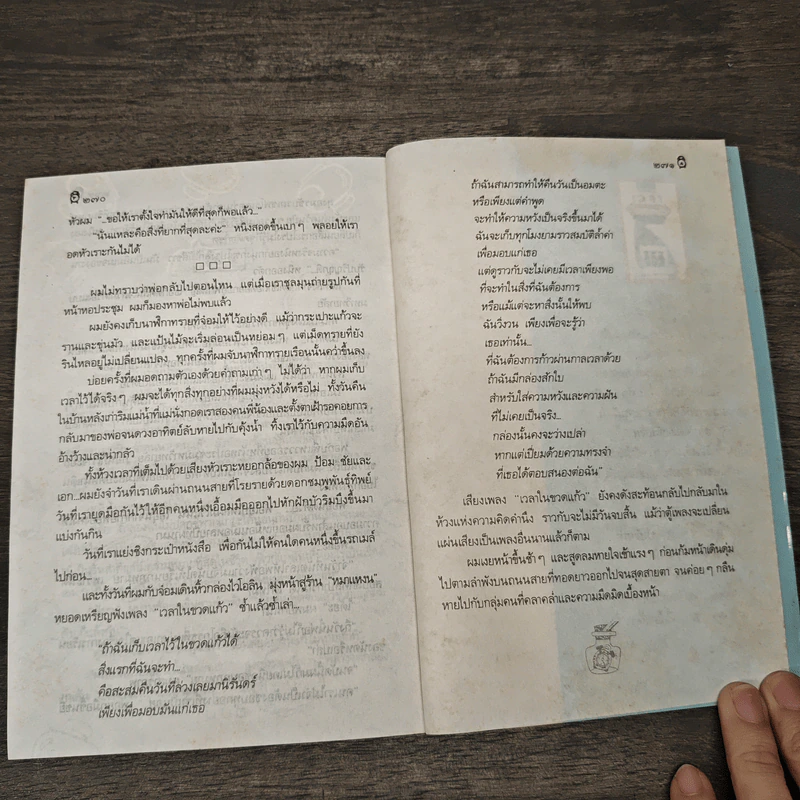 ๒๗๐
หัวผม "...ขอให้เราตั้งใจทำมันให้ดีที่สุดก็พอแล้ว..."
"นั่นแหละคือสิ่งที่ยากที่สุดละค่ะ" หนึ่งสอดขึ้นเบาๆ พลอยให้เรา
อดหัวเราะกันไม่ได้
□ □ □
ผมไม่ทราบว่าพ่อกลับไปตอนไหน แต่เมื่อเราชุลมุนถ่ายรูปกันที่
หน้าหอประชุม ผมก็มองหาพ่อไม่พบแล้ว
ผมยังคงเก็บนาฬิกาทรายที่จ้อมให้ไว้อย่างดี แม้ว่ากระเปาะแก้วจะ
รานและขุ่นมัว และแป้นไม้จะเริ่มล่อนเป็นหย่อมๆ แต่เม็ดทรายที่ยัง
รินไหลอยู่ไม่เปลี่ยนแปลง ทุกครั้งที่ผมจับนาฬิกาทรายเรือนนั้นคว่ำขึ้นลง
บ่อยครั้งที่ผมอดถามตัวเองด้วยคำถามเก่าๆ ไม่ได้ว่า หากผมเก็บ
เวลาไว้ได้จริงๆ ผมจะได้ทุกสิ่งทุกอย่างที่ผมมุ่งหวังได้หรือไม่ ทั้งวันคืน
ในบ้านหลังเก่าริมแม่น้ำที่แม่นั่งกอดเราสองคนพี่น้องและตั้งตาเฝ้ารอคอยการ
กลับมาของพ่อจนดวงอาทิตย์ลับหายไปกับคุ้งน้ำ ทิ้งเราไว้กับความมืดอัน
อ้างว้างและน่ากลัว
ทั้งห้วงเวลาที่เต็มไปด้วยเสียงหัวเราะหยอกล้อของผม ป้อม ชัยและ
เอก...ผมยังจำวันที่เราเดินผ่านถนนสายที่โรยรายด้วยดอกชมพูพันธุ์ทิพย์
วันที่เรายุดมือกันไว้ให้อีกคนหนึ่งเอื้อมมือออกไปหักฝักบัวริมบึงขึ้นมา
แบ่งกันกิน
วันที่เราแย่งชิงกระเป๋าหนังสือ เพื่อกันไม่ให้คนใดคนหนึ่งขึ้นรถเมล์
ไปก่อน...
และทั้งวันที่ผมกับจ้อมเดินหิ้วกล่องไวโอลิน มุ่งหน้าสู่ร้าน "หมาแหงน"
หยอดเหรียญฟังเพลง "เวลาในขวดแก้ว" ซ้ำแล้วซ้ำเล่า...
"ถ้าฉันเก็บเวลาไว้ในขวดแก้วได้
สิ่งแรกที่ฉันจะทำ...
คือสะสมคืนวันที่ล่วงเลยมานิรันดร์
เพียงเพื่อมอบมันแก่เธอ
๒๗๑
ถ้าฉันสามารถทำให้คืนวันเป็นอมตะ
หรือเพียงแต่คำพูด
จะทำให้ความหวังเป็นจริงขึ้นมาได้
ฉันจะเก็บทุกโมงยามราวสมบัติล้ำค่า
เพื่อมอบแก่เธอ
แต่ดูราวกับจะไม่เคยมีเวลาเพียงพอ
ที่จะทำในสิ่งที่ฉันต้องการ
หรือแม้แต่จะหาสิ่งนั้นให้พบ
ฉันวิ่งวน เพียงเพื่อจะรู้ว่า
เธอเท่านั้น...
ที่ฉันต้องการก้าวผ่านกาลเวลาด้วย
ถ้าฉันมีกล่องสักใบ
สำหรับใส่ความหวังและความฝัน
ที่ไม่เคยเป็นจริง...
กล่องนั้นคงจะว่างเปล่า
หากแต่เปี่ยมด้วยความทรงจำ
ที่เธอได้ตอบสนองต่อฉัน"
เสียงเพลง "เวลาในขวดแก้ว" ยังคงดังสะท้อนกลับไปกลับมาใน
ห้วงแห่งความคิดคำนึง ราวกับจะไม่มีวันจบสิ้น แม้ว่าตู้เพลงจะเปลี่ยน
แผ่นเสียงเป็นเพลงอื่นนานแล้วก็ตาม
ผมเงยหน้าขึ้นช้าๆ และสูดลมหายใจเข้าแรงๆ ก่อนก้มหน้าเดินดุ่ม
ไปตามลำพังบนถนนสายที่ทอดยาวออกไปจนสุดสายตา จนค่อยๆ กลืน
หายไปกับกลุ่มคนที่คลาคล่ำและความมืดมิดเบื้องหน้า